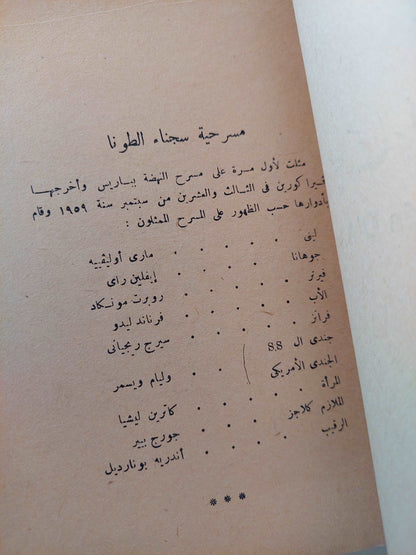 مسرحية سجناء الطونا
مثلت لأول مسرة على مسرح النهضة بباريس وأخرجها
فيرا كورين فى الثالث والعشرين من سبتمبر سنة ١٩٥٩ وقام
بأدوارها حسب الظهور على المسرح الممثلون :
لينى . . . . . . مارى أوليفييه
جوهانا . . . . . . إيفلين راى
فيرنر . . . . . . روبرت مونكاد
الأب . . . . . . فرناند ليدو
فرانز . . . . . . سيرج ريجيانى
جندى ال S.S
الجندى الأمريكى . . وليام ويسمر
المرأة . . . . . . كاترين ليشيا
الملازم كلاجز . . . . جورج بيير
الرقيب . . . . . . أندريه بونارديل
***